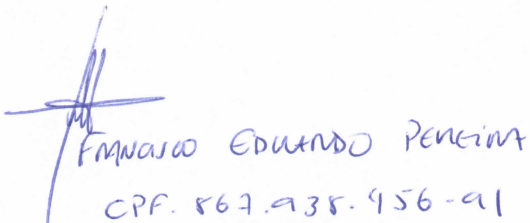 FRANCISCO EDUARDO PEREIRA
CPF. 867.938.456-91